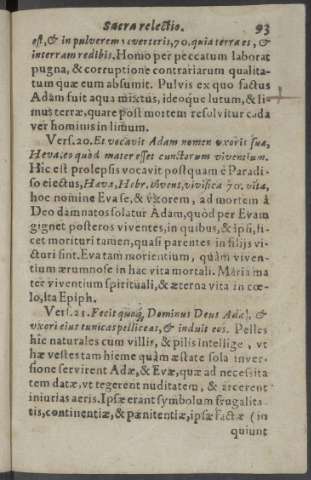 Sacra relectio. 93
est, & in pulverem reverteris, 70. quia terra es, &
in terram redibis. Homo per peccatum laborat
pugna, & corruptione contrariarum qualita-
tum quæ eum absumit. Pulvis ex quo factus
Adam fuit aqua mixtus, ideoque lutum, & li-
mus terræ, quare post mortem resolvitur cada
ver hominis in limum.
Vers. 20. Et vocavit Adam nomen uxoris suæ,
Heva, eo quòd mater esset cunctorum viventium.
Hic est prolepsis vocavit postquam è Paradi-
so eiectus, Hava, Hebr. vivens, vivifica 70. vita,
hoc nomine Eva se, & uxorem, ad mortem à
Deo damnatos solatur Adam, quòd per Evam
gignet posteros viventes, in quibus, & ipsi, li-
cet morituri tamen, quasi parentes in filijs vi-
cturi sint. Eva tam morientium, quàm viven-
tium ærumnose in hac vita mortali. Maria ma
ter viventium spirituali, & æterna vita in cœ-
lo, Ita Epiph.
Vers. 21. Fecit quoq; Dominus Deus Adæ, &
uxori eius tunicas pelliceas, & induit eos. Pelles
hîc naturales cum villis, & pilis intellige, vt
hæ vestes tam hieme quàm æstate sola inver-
sione servirent Adæ, & Evæ, quæ ad necessita
tem datæ, vt tegerent nuditatem, & arcerent
iniurias aeris. Ipsæ erant symbolum frugalita-
tis, continentiæ, & pænitentiæ, ipsæ factæ (in
quiunt